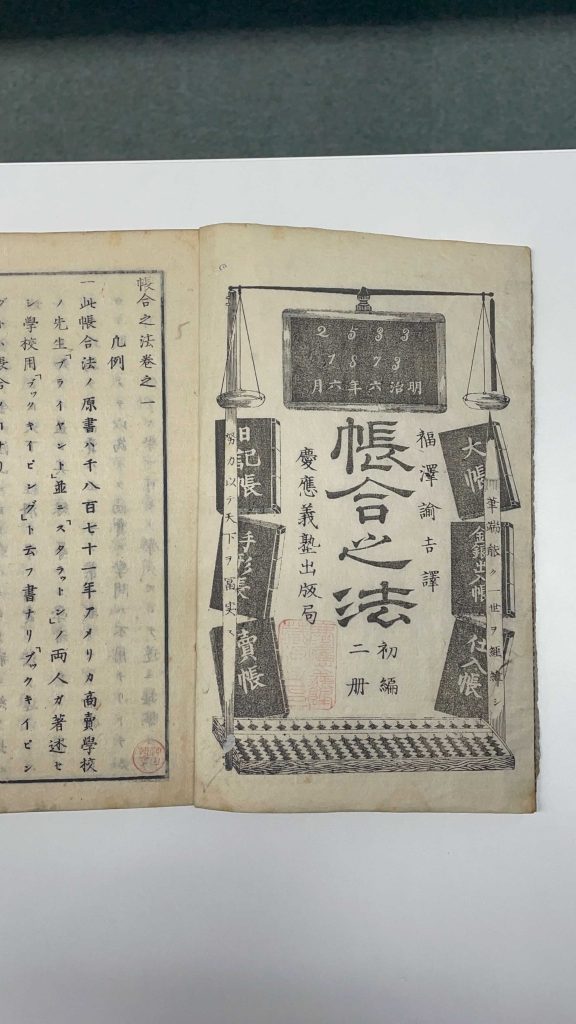 2533
1873
明治六年六月
大帳
金銀出入帳
仕入帳
筆端能ク一世ヲ經綸シ
福澤諭吉譯
帳合之法
初編
二册
慶應義塾出版局
努力以テ天下ヲ富実ス
日記帳
手形帳
賣帳
帳合之法卷之一
凡例
一此帳合法ノ原書ハ千八百七十一年アメリカ商賣學校
ノ先生「ブライヤント」並ニ「スタラットン」ノ両人ガ著述セ
シ學校用「ブックキイピング」ト云フ書ナリ「ブックキイピン